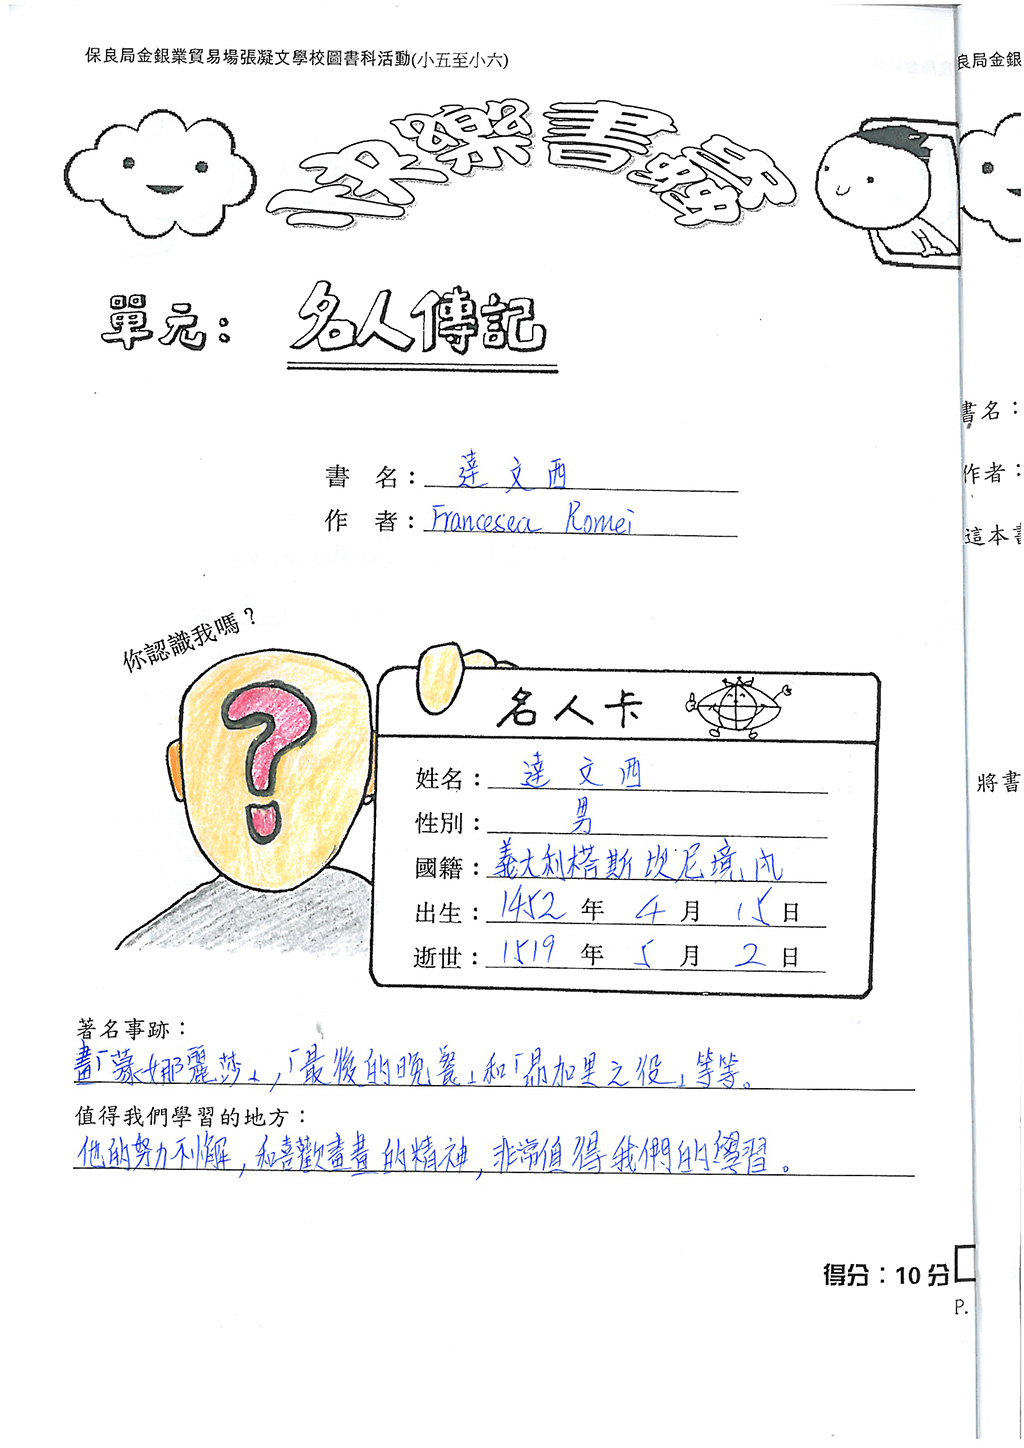 保良局金銀業貿易場張凝文學校圖書科活動(小五至小六)
良局金銀
單元：
名人傳記
書名：達文西
作者：Francesca Romei
書名：
作者：
這本書
你認識我嗎？
名人卡
姓名：達文西
性別：男
國籍：義大利榙斯坎尼境內
出生：1452年4月15日
逝世：1519年5月2日
將書
著名事跡：
畫「蒙娜麗莎」，「最後的晚餐」和「昂加里之役」等等。
值得我們學習的地方：
他的努力不懈，和喜歡畫畫的精神，非常值得我們的學習。
得分：10分
P.